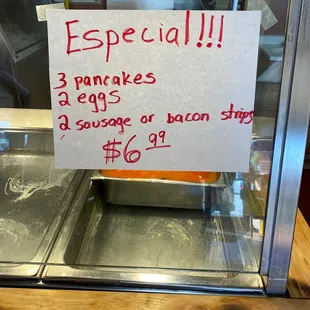 Especial!!!
3 pancakes
2 eggs
2 sausage or bacon strips
$6.99